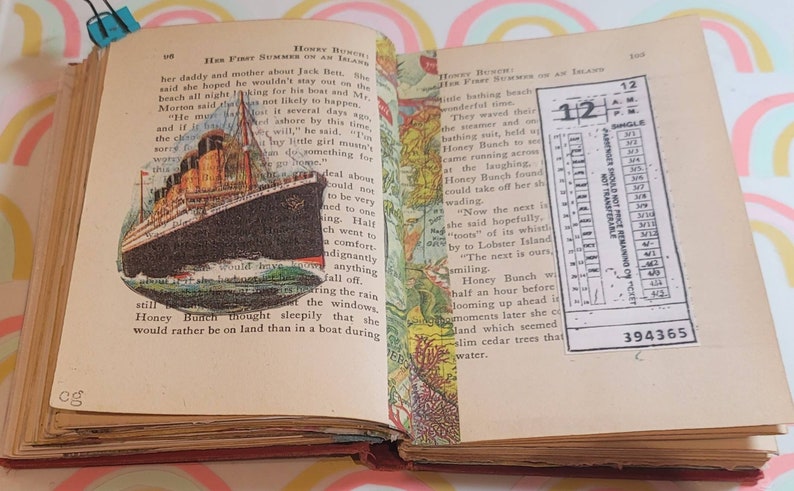 98
HONEY BUNCH:
HER FIRST SUMMER ON AN ISLAND
her daddy and mother about Jack Bett. She
said she hoped he wouldn't stay out on the
beach all night looking for his boat and Mr.
Morton said that was not likely to happen.
"He must have lost it several days ago,
and if it ashore by this time,
the will," he said. "I'm
my little girl mustn't
worry do something for
we go home."
deal about
could not
to be very
and
time. Half
went to
a comfort-
indignantly
would have known anything
about it if she fall off.
hearing the rain
still the windows,
Honey Bunch thought sleepily that she
would rather be on land than in a boat during
cg
105
HONEY BUNCH:
HER FIRST SUMMER ON AN ISLAND
little bathing beach
wonderful time.
They waved their
the steamer and on
bathing suit, held up
Honey Bunch to see
came running across
at the laughing,
Honey Bunch found
could take off her sh
wading.
"Now the next is
she said hopefully,
"toots" of its whistl
by to Lobster Island
"The next is ours,
smiling.
Honey Bunch wa
half an hour before
looming up ahead it
moments later she co
land which seemed
slim cedar trees that
water.
12
12
A. M.
P. M.
SINGLE
PASSENGER SHOULD NOT PRICE REMAINING ON TICKET
NOT TRANSFERABLE
3/1
3/2
3/3
3/4
3/5
3/6
3/7
3/8
3/9
3/10
3/11
3/12
4/-
4/1
4/2
4/3
4/4
4/5
394365